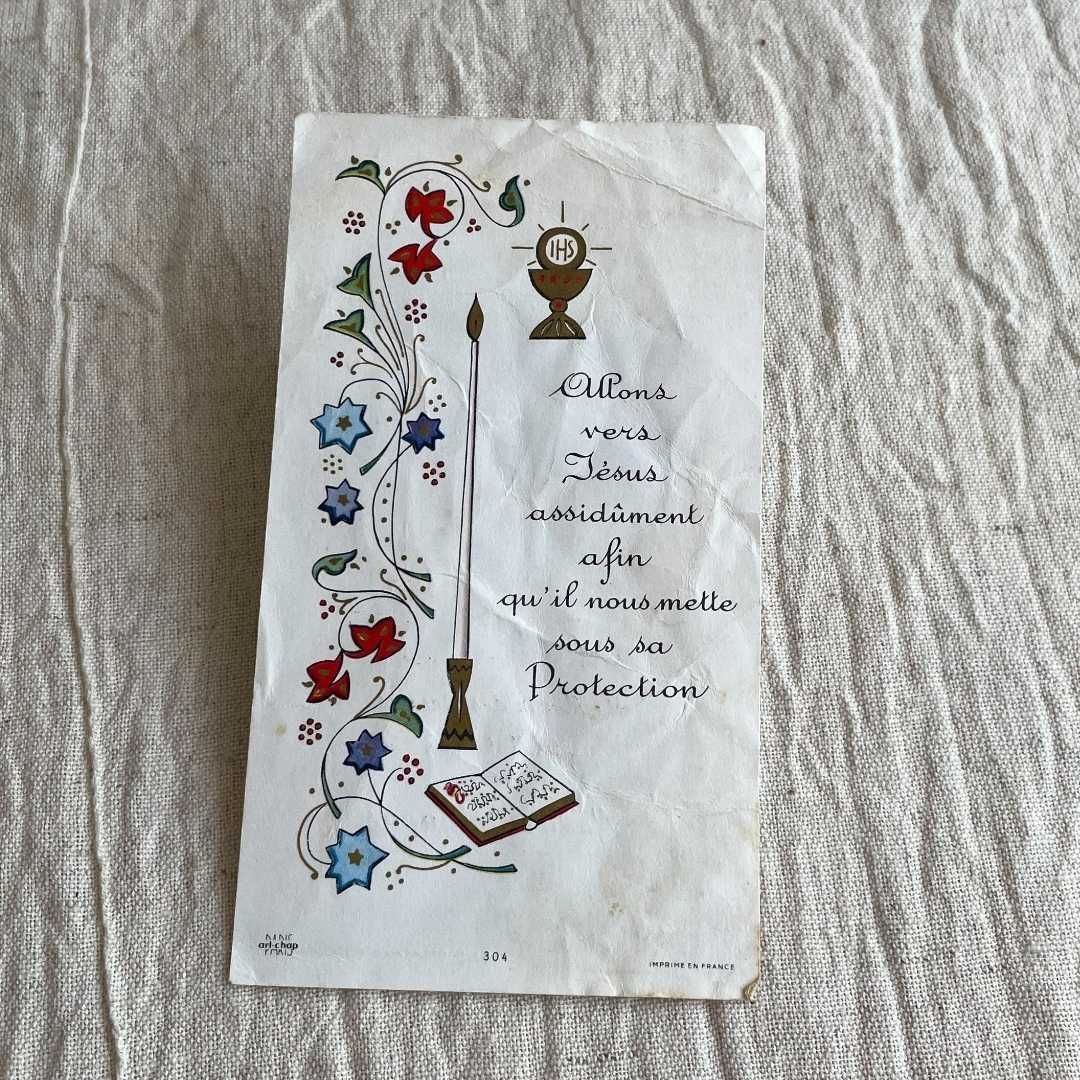 IHS
Allons
vers
Jésus
assidûment
afin
qu'il nous mette
sous sa
Protection
PARIS
art-chap
304
IMPRIME EN FRANCE